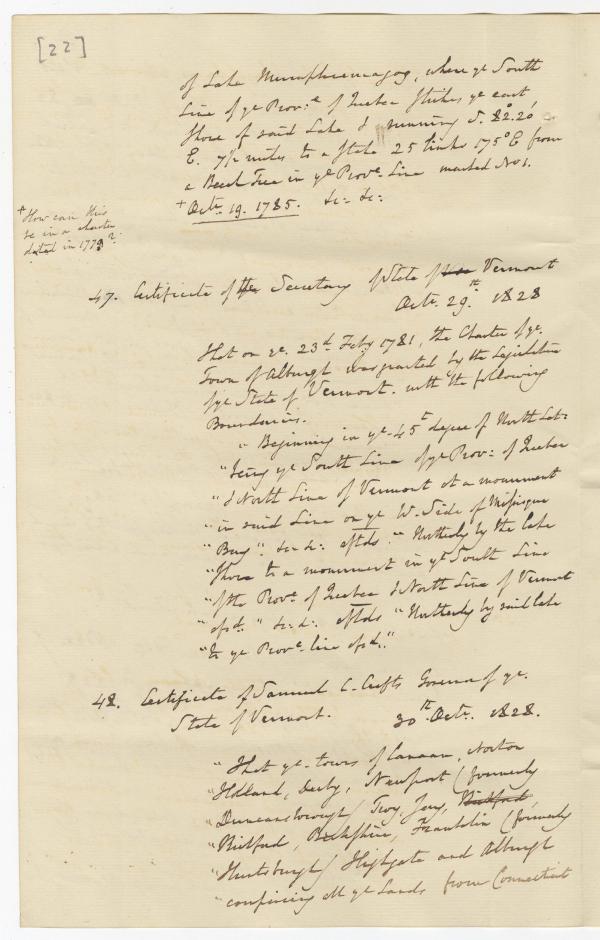 [22]
of Lake Memphremagog, where ye South
Line of ye Prov:e of Quebec strikes ye east
Shore of said Lake & running S. 82°.20'
E. 7½ miles to a Stake 25 links 175° E from
a Beech Tree in ye Prov:e Line marked No 1.
+ Octr. 19. 1785. &c: &c:
+ How can this
be in a charter
dated in 1779?
47. Certificate of the Secretary of State of Vermont
Octr. 29th. 1828
That on ye. 23d. Feby 1781, the Charter of ye.
Town of Alburgh was granted by the Legislature
of ye State of Vermont. with the following
Boundaries.
" Beginning in ye 45th degree of North Lat:
"being ye South Line of ye Prov: of Quebec
" & North Line of Vermont at a monument
" in said Line on ye W. Side of Missisque
" Bay". &c: &c: " Northerly by the lake
"Shore to a monument in ye South Line
"of the Prov:e of Quebec & North Line of Vermont
" afsd." &c: &c: "Northerly by said lake
"to ye Prov:e line afsd:."
48. Certificate of Samuel C. Crafts Governor of ye.
State of Vermont. 30th. Octr. 1828.
" That ye towns of Canaan, Norton
"Holland, Derby, Newport (formerly
"Duncansborough) Troy, Jay,
"Richford, Berkshire, Franklin (formerly
"Huntsburgh) Highgate and Alburgh
"comprising all ye Lands from Connecticut